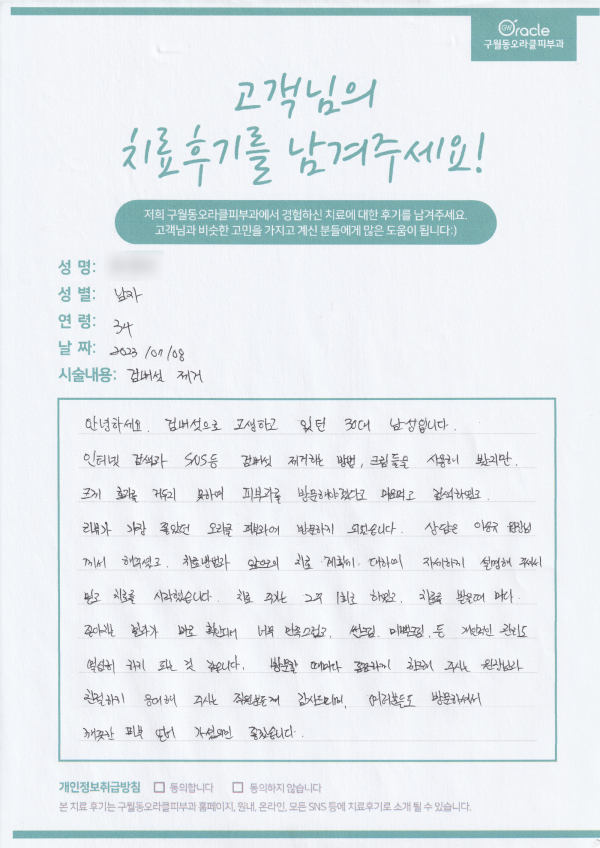 GW Oracle
구월동오라클피부과
고객님의
치료후기를 남겨주세요!
저희 구월동오라클피부과에서 경험하신 치료에 대한 후기를 남겨주세요.
고객님과 비슷한 고민을 가지고 계신 분들에게 많은 도움이 됩니다:)
성 명:
성 별: 남자
연 령: 34
날 짜: 2023/07/08
시술내용: 검버섯 제거
안녕하세요. 검버섯으로 고생하고 있던 30대 남성입니다.
인터넷 검색과 SNS등 검버섯 제거하는 방법, 크림들을 사용해 봤지만,
크게 효과를 거두지 못하여 피부과를 방문해야겠다고 마음먹고 검색하였고,
리뷰가 가장 좋았던 오라클 피부과에 방문하게 되었습니다. 상담은 원장님
께서 해주셨고, 치료방법과 앞으로의 치료 계획에 대하여 자세하게 설명해 주셔서
믿고 치료를 시작했습니다. 치료 주기는 2주 1회로 하였고, 치료를 받을때 마다
좋아지는 결과가 바로 확인되어 너무 만족스럽고, 썬크림, 미백크림 등 개인적인 관리도
열심히 하게 되는 것 같습니다. 방문할 때마다 꼼꼼하게 진료해 주시는 원장님과
친절하게 응대해 주시는 직원분들께 감사드리며, 여러분들도 방문하셔서
깨끗한 피부 되셨으면 좋겠습니다.
개인정보취급방침 동의합니다 동의하지 않습니다
본 치료 후기는 구월동오라클피부과 홈페이지, 원내, 온라인, 모든 SNS 등에 치료후기로 소개 될 수 있습니다.